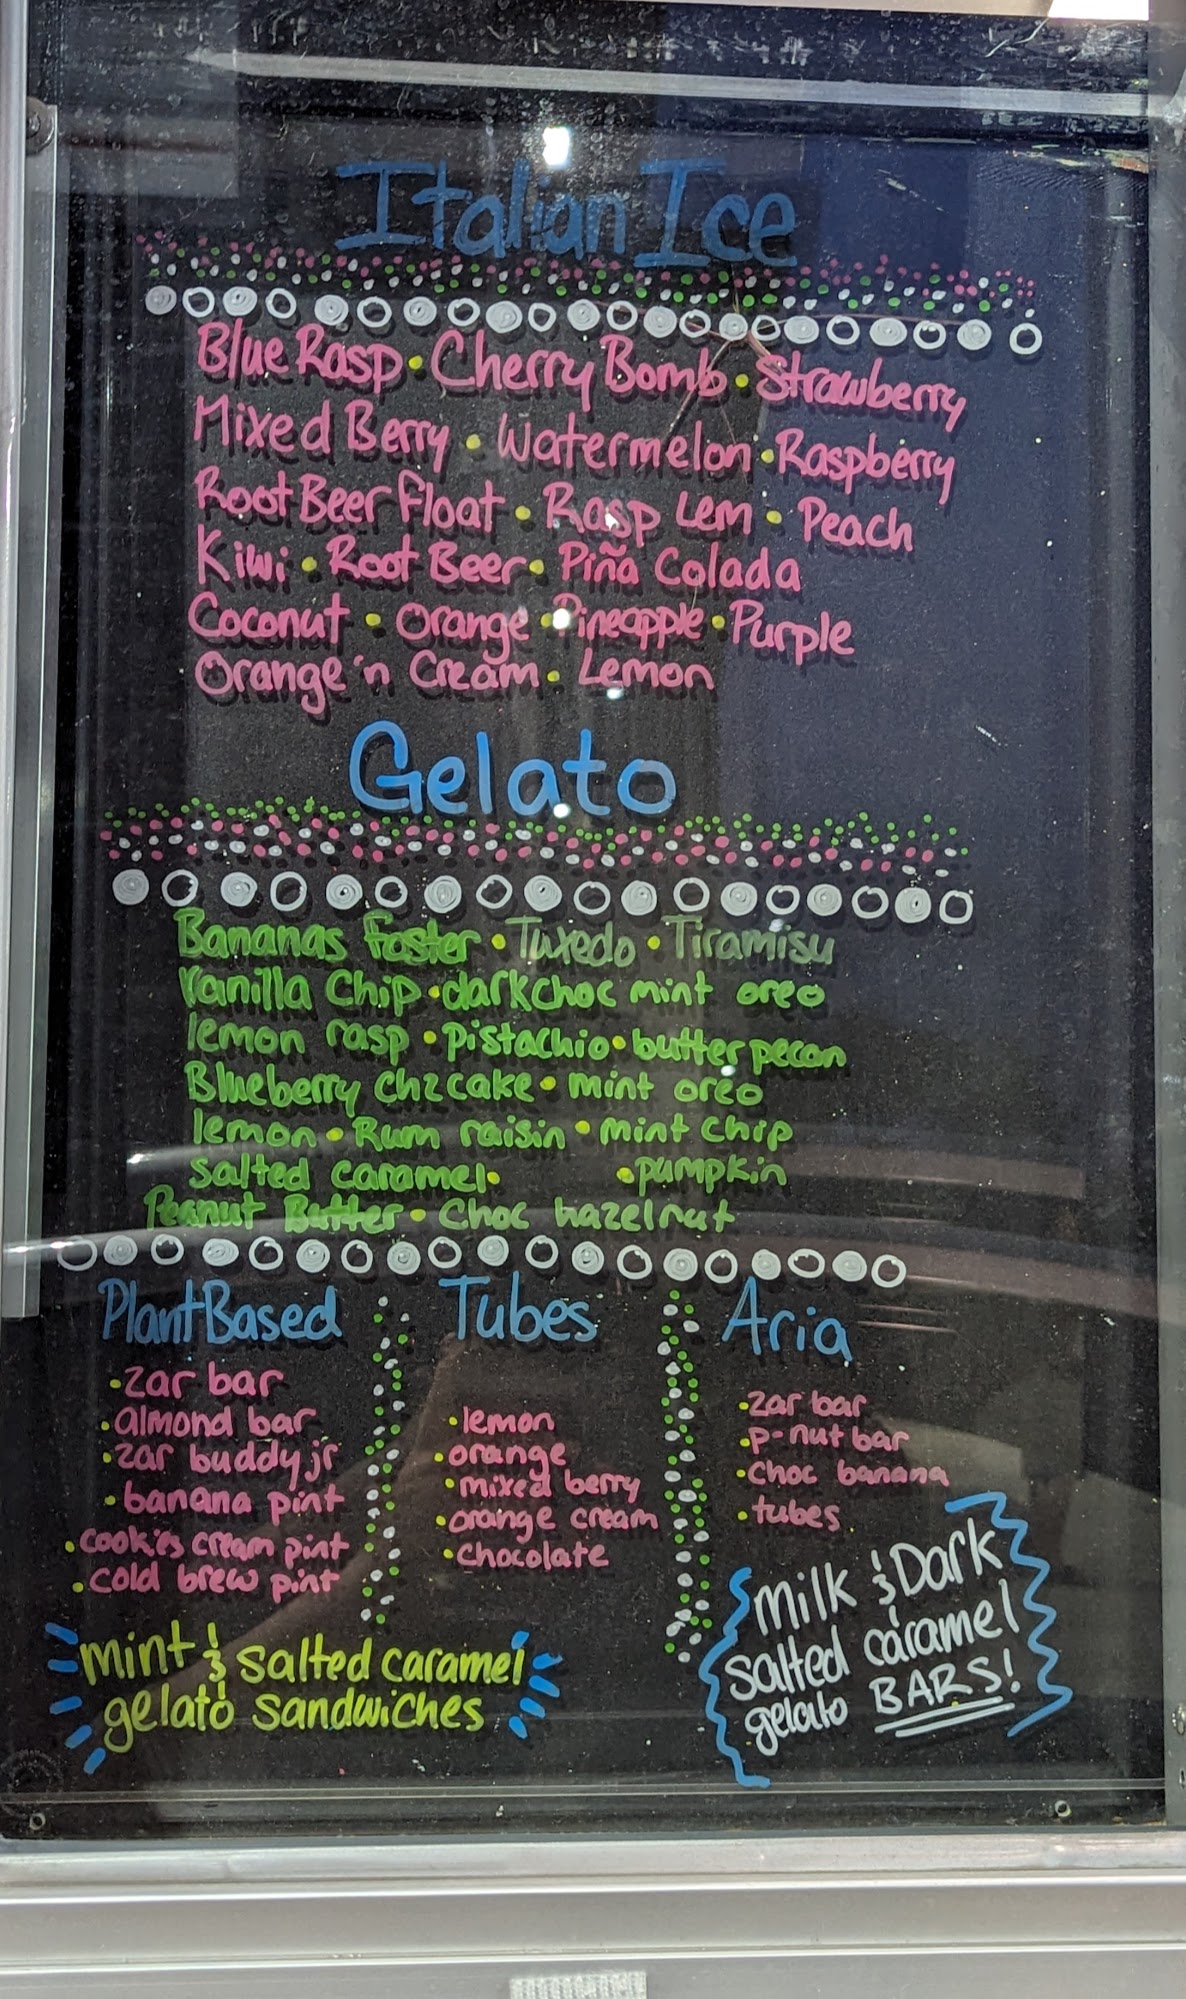 Italian Ice
Blue Rasp • Cherry Bomb • Strawberry
Mixed Berry • Watermelon • Raspberry
Root Beer Float • Rasp Lem • Peach
Kiwi • Root Beer • Piña Colada
Coconut • Orange • Pineapple • Purple
Orange 'n Cream • Lemon
Gelato
Bananas Foster • Tuxedo • Tiramisu
Vanilla Chip • dark choc mint oreo
lemon rasp • pistachio • butter pecan
Blueberry chzcake • mint oreo
lemon • Rum raisin • mint chip
salted caramel • • pumpkin
Peanut Butter • choc hazelnut
Plant Based
• zar bar
• almond bar
• zar buddy jr
• banana pint
• cookies cream pint
• cold brew pint
Tubes
• lemon
• orange
• mixed berry
• orange cream
• chocolate
Aria
• zar bar
• p-nut bar
• choc banana
• tubes
mint & salted caramel
gelato sandwiches
Milk & Dark
salted caramel
gelato BARS!